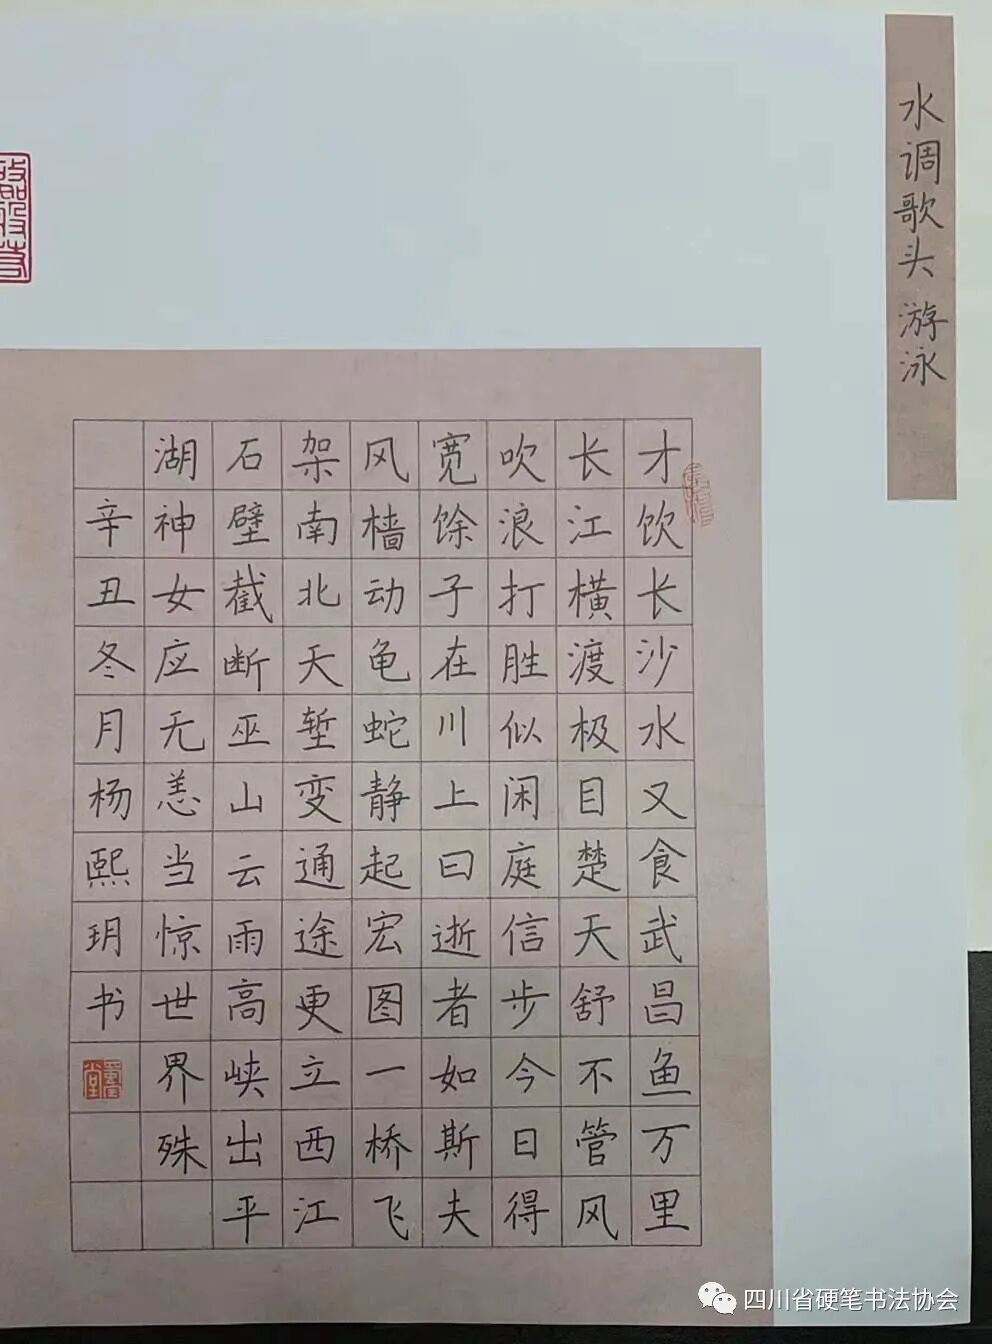 水调歌头 游泳
才饮长沙水又食武昌鱼万里
长江横渡极目楚天舒不管风
吹浪打胜似闲庭信步今日得
宽馀子在川上曰逝者如斯夫
风樯动龟蛇静起宏图一桥飞
架南北天堑变通途更立西江
石壁截断巫山云雨高峡出平
湖神女应无恙当惊世界殊
辛丑冬月杨熙玥书
四川省硬笔书法协会